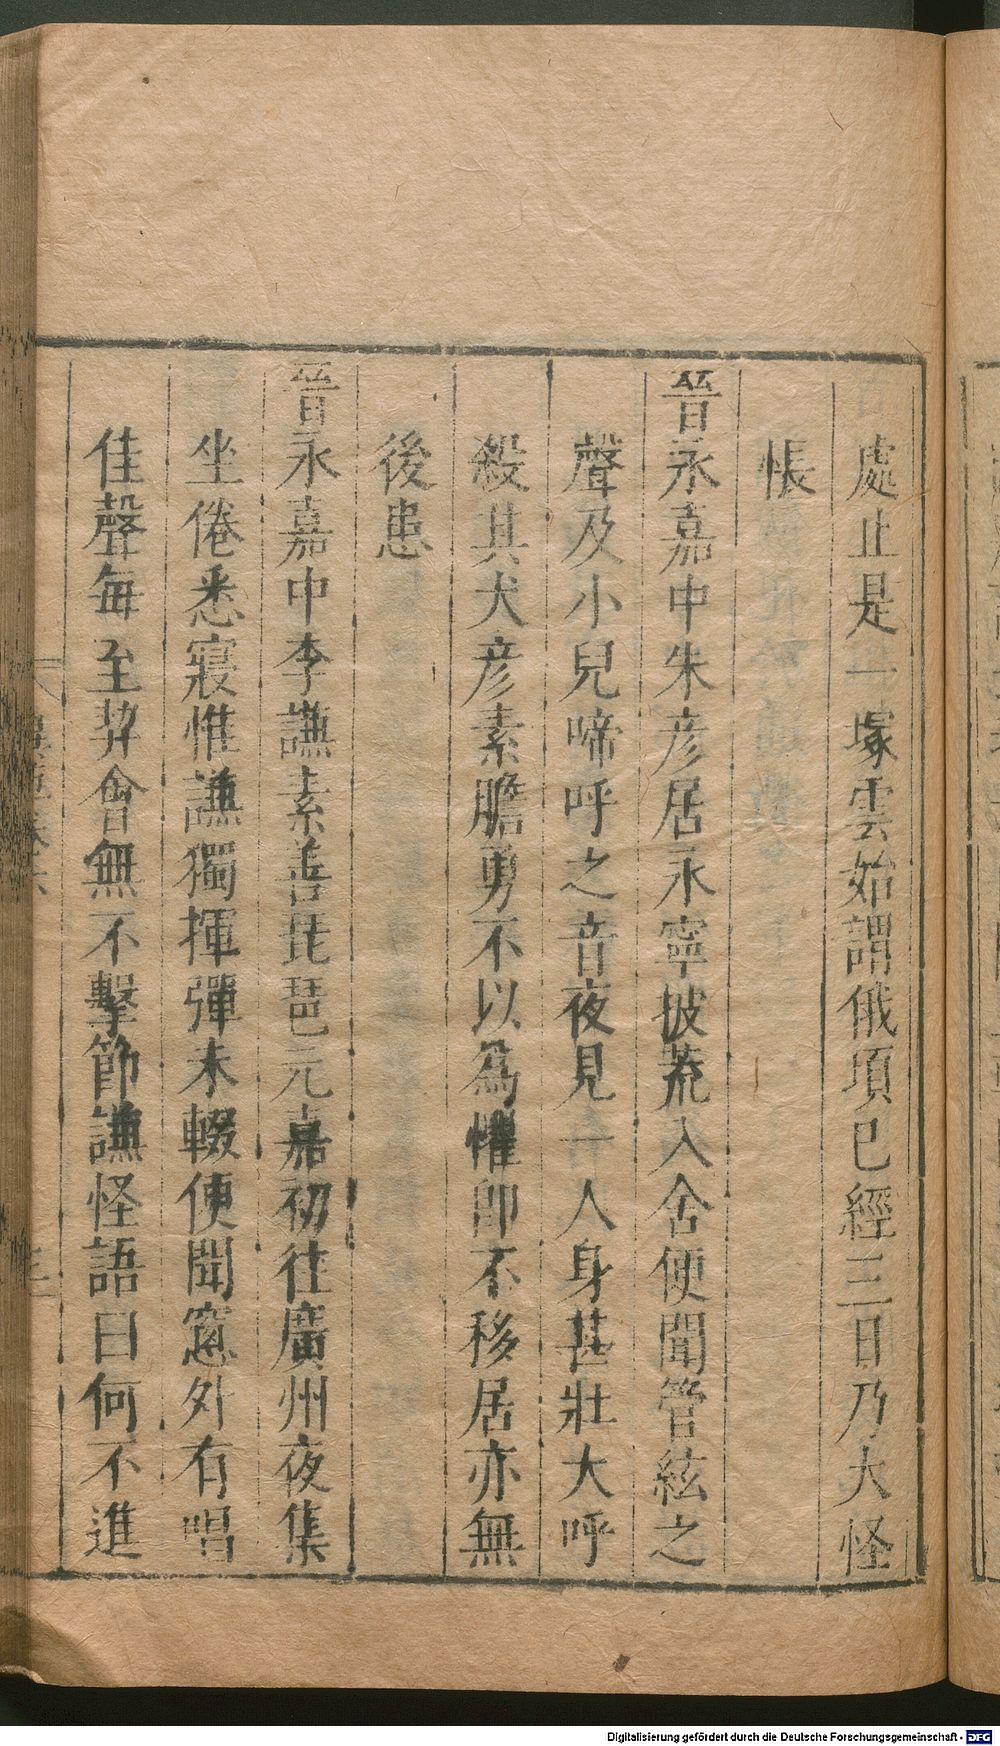 處止是一塚雲始謂俄項已經三日乃大怪
悵
晉永嘉中朱彦居永寧披荒入舍便聞管絃之
聲及小兒啼呼之音夜見一人身甚壯大呼
殺其犬彦素膽勇不以為懼即不移居亦無
後患
晉永嘉中李謙素善琵琶元嘉初往廣州夜集
坐倦悉寢惟謙獨揮彈未輟便聞窓外有唱
佳聲每至契會無不擊節謙怪語曰何不進
Digitalisierung gefördert durch die Deutsche Forschungsgemeinschaft - DFG